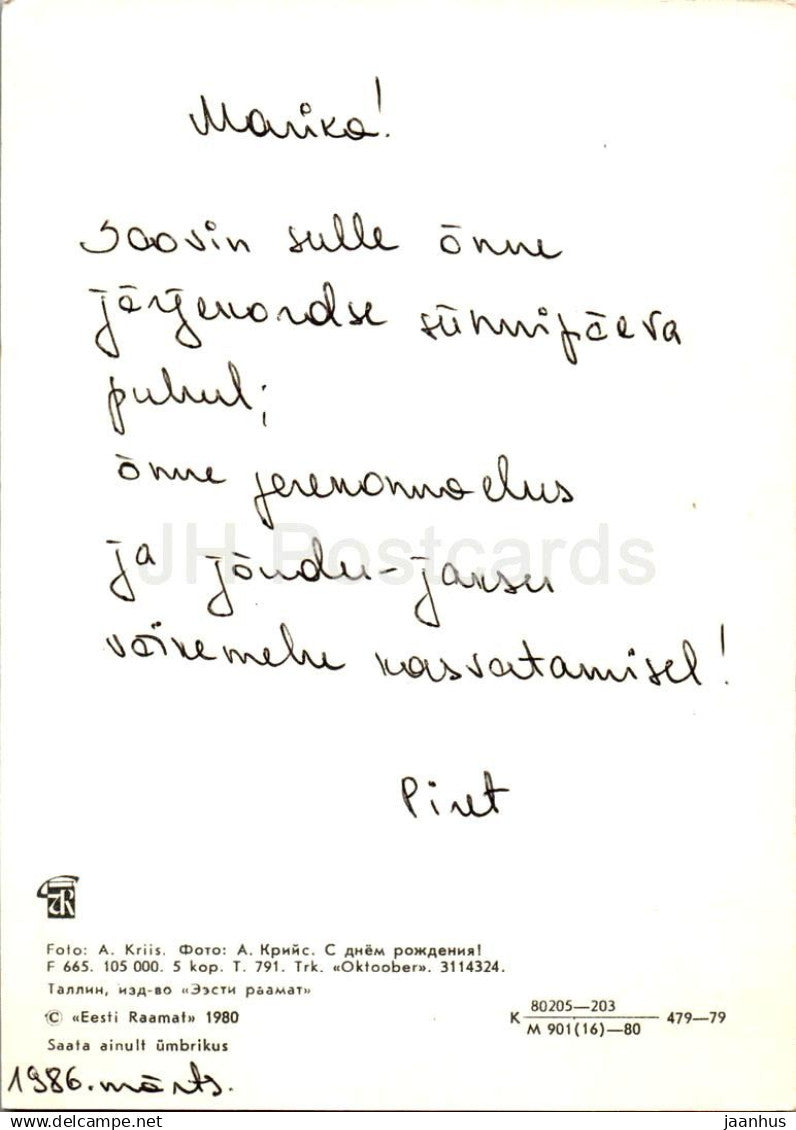 Marika!
Soovin sulle õnne
järjekordse sünnipäeva
puhul;
õnne perekonnaelus
ja jõudu-jaksu
väikemehe kasvatamisel!
Piret
JH Postcards
Foto: A. Kriis. Фото: А. Крийс. С днём рождения!
F 665. 105 000. 5 kop. T. 791. Trk. «Oktoober». 3114324.
Таллин, изд-во «Ээсти раамат»
© «Eesti Raamat» 1980
K 80205—203 / M 901(16)—80 479—79
Saata ainult ümbrikus
1986. märts.
HipPostcard.com
jaanhus